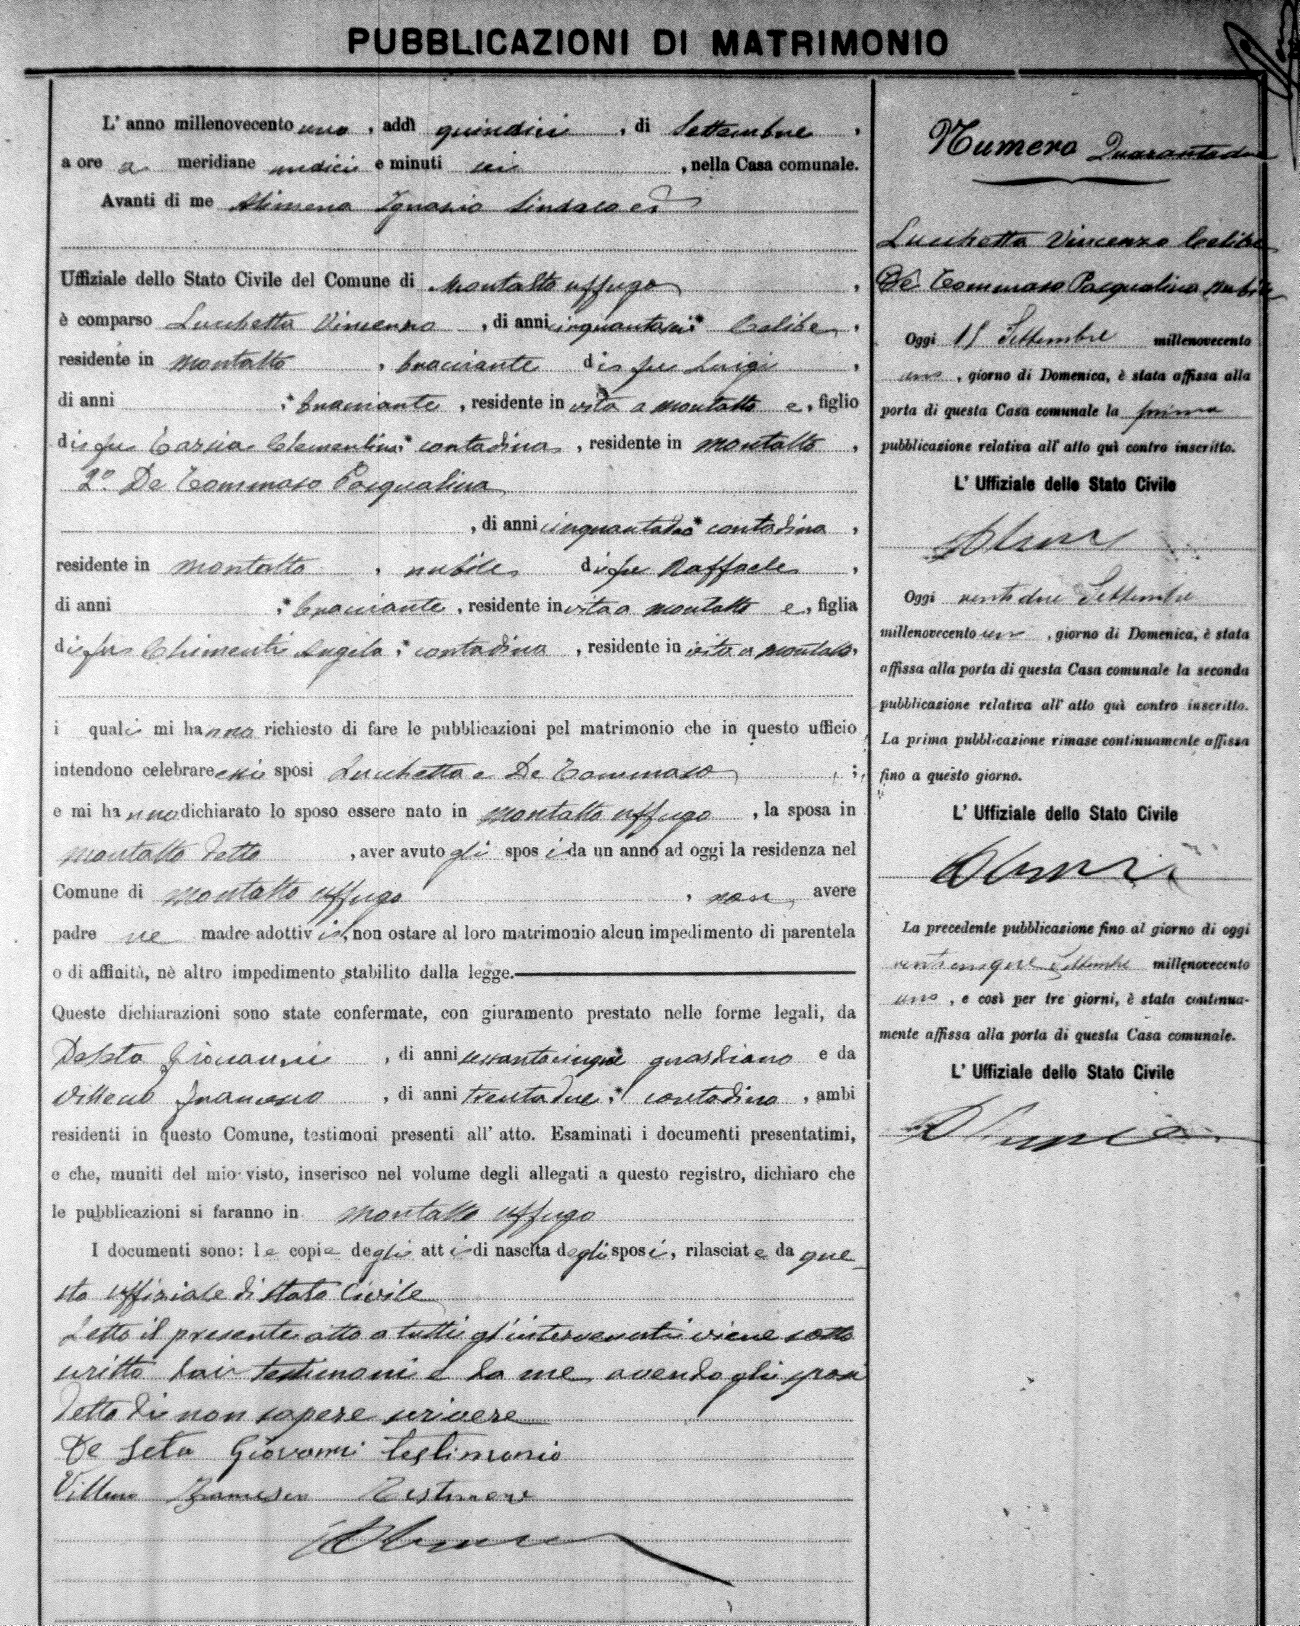 PUBBLICAZIONI DI MATRIMONIO
L' anno millenovecento uno, addì quindici, di Settembre,
a ore a meridiane undici e minuti sei, nella Casa comunale.
Avanti di me Alimena Ignazio Sindaco ed
Uffiziale dello Stato Civile del Comune di Montalto Uffugo,
è comparso Lucchetta Vincenzo, di anni cinquantasei; Celibe,
residente in Montalto, bracciante di fu Luigi,
di anni ; bracciante, residente in vita a Montalto e, figlio
di fu Carzia Clementina; contadina, residente in Montalto,
2º De Tommaso Pasqualina
, di anni cinquantadue contadina,
residente in Montalto, nubile di fu Raffaele,
di anni ; bracciante, residente in vita a Montalto e, figlia
di fu Chimenti Angela; contadina, residente in vita a Montalto,
i quali mi hanno richiesto di fare le pubblicazioni pel matrimonio che in questo ufficio
intendono celebrare essi sposi Lucchetta e De Tommaso ;
e mi hanno dichiarato lo sposo essere nato in Montalto Uffugo, la sposa in
Montalto detto, aver avuto gli sposi da un anno ad oggi la residenza nel
Comune di Montalto Uffugo, non avere
padre ne madre adottivi, non ostare al loro matrimonio alcun impedimento di parentela
o di affinità, nè altro impedimento stabilito dalla legge.
Queste dichiarazioni sono state confermate, con giuramento prestato nelle forme legali, da
Deseta Giovanni, di anni sessantacinque guardiano e da
Francesco, di anni trentadue; contadino, ambi
residenti in questo Comune, testimoni presenti all' atto. Esaminati i documenti presentatimi,
e che, muniti del mio visto, inserisco nel volume degli allegati a questo registro, dichiaro che
le pubblicazioni si faranno in Montalto Uffugo
I documenti sono: le copie degli atti di nascita degli sposi, rilasciate da que-
sto uffiziale di stato Civile
Letto il presente atto a tutti gl'intervenuti viene sotto
scritto dai testimoni e da me, avendo gli sposi
detto di non sapere scrivere
De Seta Giovanni testimonio
Francesco Testimone
Numero Quarantadue
Lucchetta Vincenzo Celibe
De Tommaso Pasqualina nubile
Oggi 15 Settembre millenovecento
uno, giorno di Domenica, è stata affissa alla
porta di questa Casa comunale la prima
pubblicazione relativa all' atto quì contro inscritto.
L' Uffiziale dello Stato Civile
Oggi ventidue Settembre
millenovecento uno, giorno di Domenica, è stata
affissa alla porta di questa Casa comunale la seconda
pubblicazione relativa all' atto quì contro inscritto.
La prima pubblicazione rimase continuamente affissa
fino a questo giorno.
L' Uffiziale dello Stato Civile
La precedente pubblicazione fino al giorno di oggi
venticinque Settembre millenovecento
uno, e così per tre giorni, è stata continua-
mente affissa alla porta di questa Casa comunale.
L' Uffiziale dello Stato Civile